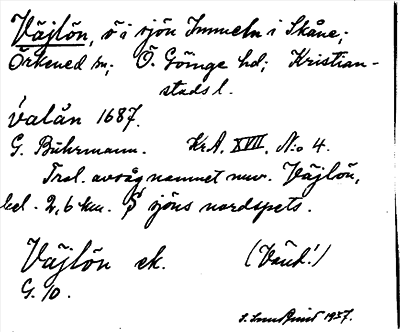 Väjlön, ö i sjön Immeln i Skåne;
Örkened sn; Ö. Göinge hd; Kristian-
stads l.
valån 1687.
G. Buhrmann. KrA. XVII. N:o 4.
Trol. avsåg namnet nuv. Väjlön,
bel. 2,6 km. S sjöns nordspets.
Väjlön ek. (Vänd!)
G. 10.
1937.